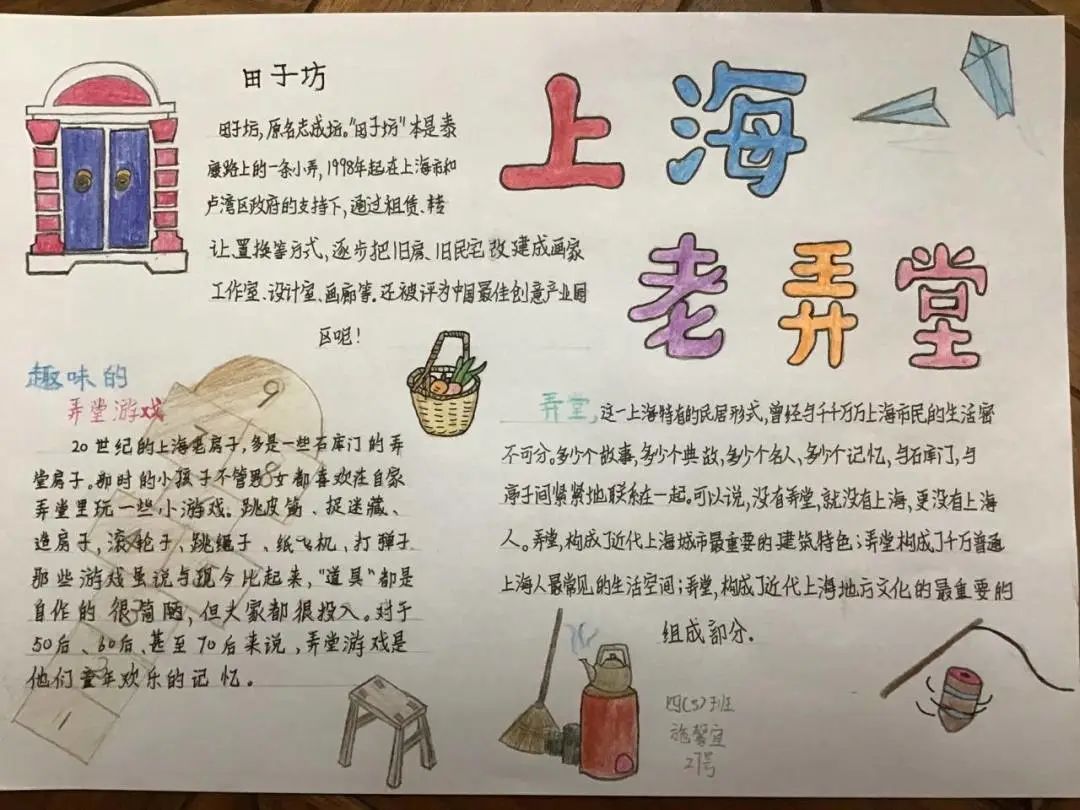 上海
老弄堂
田子坊
田子坊,原名志成坊。"田子坊"本是泰
康路上的一条小弄,1998年起在上海市和
卢湾区政府的支持下,通过租赁、转
让、置换等方式,逐步把旧房、旧民宅改建成画家
工作室、设计室、画廊等.还被评为中国最佳创意产业园
区呢!
趣味的
弄堂游戏
20世纪的上海老房子,多是一些石库门的弄
堂房子。那时的小孩子不管男女都喜欢在自家
弄堂里玩一些小游戏。跳皮筋、捉迷藏、
造房子、滚轮子、跳绳子、纸飞机、打弹子
那些游戏虽说与现今比起来,"道具"都是
自作的很简陋,但大家都很投入。对于
50后、60后、甚至70后来说,弄堂游戏是
他们童年欢乐的记忆。
9
8
7
3
1
弄堂,这一上海特有的民居形式,曾经与千千万万上海市民的生活密
不可分。多少个故事,多少个典故,多少个名人,多少个记忆,与石库门,与
亭子间紧紧地联系在一起。可以说,没有弄堂,就没有上海,更没有上海
人。弄堂,构成了近代上海城市最重要的建筑特色;弄堂构成了千万普通
上海人最常见的生活空间;弄堂,构成了近代上海地方文化的最重要的
组成部分.
四(5)班
施馨宜
27号